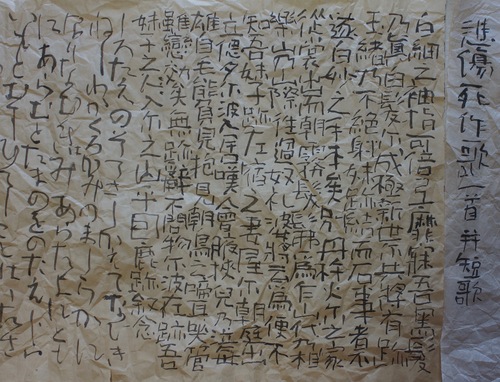 悲傷死作歌一首并短歌
白細之袖指可倍弖靡寐吾黒髪
乃真白髪尓成極新世尓共将有跡
玉緒乃不絶射妹跡結而石事者不
遂白妙之手本矣別丹杵火尓之家
従裳出而朝霧髣髴為乍山代乃相
樂山乃山際徃過奴礼婆将云為便不
知吾妹子跡左宿之妻屋尓朝庭出
立偲夕尓波入居嘆會腋挟兒乃泣毎
雄自毛能負見抱見朝鳥之啼耳哭管
雖戀効矣無跡辞不問物尓波在跡吾
妹子之入尓之山乎因鹿跡叙念
しろたえのそてさしかえてなひき
ねしわかくろかみのましらかに
なりなむきはみあらたよにとも
にあらむとたまのをのたえし
いもとむすひてしことは